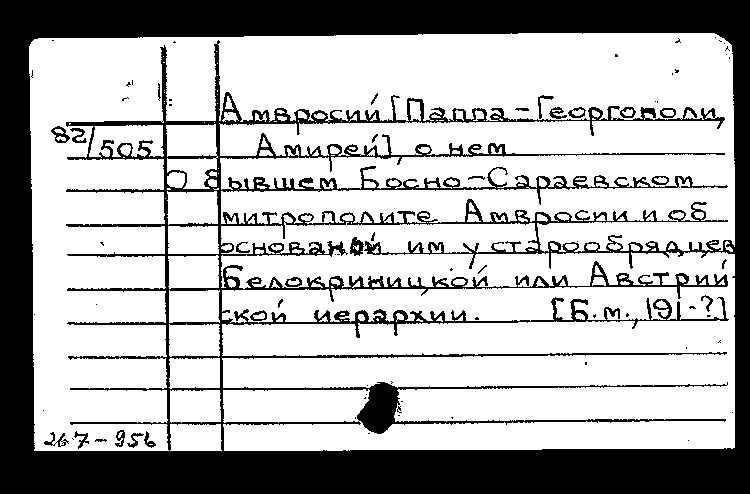 Амвросий [Паппа-Георгополи,
82/505 Амирей], о нем
О бывшем Босно-Сараевском
митрополите Амвросии и об
основаной им у старообрядцев
Белокриницкой или Австрий-
ской иерархии. [Б.м., 191-?]
267-956